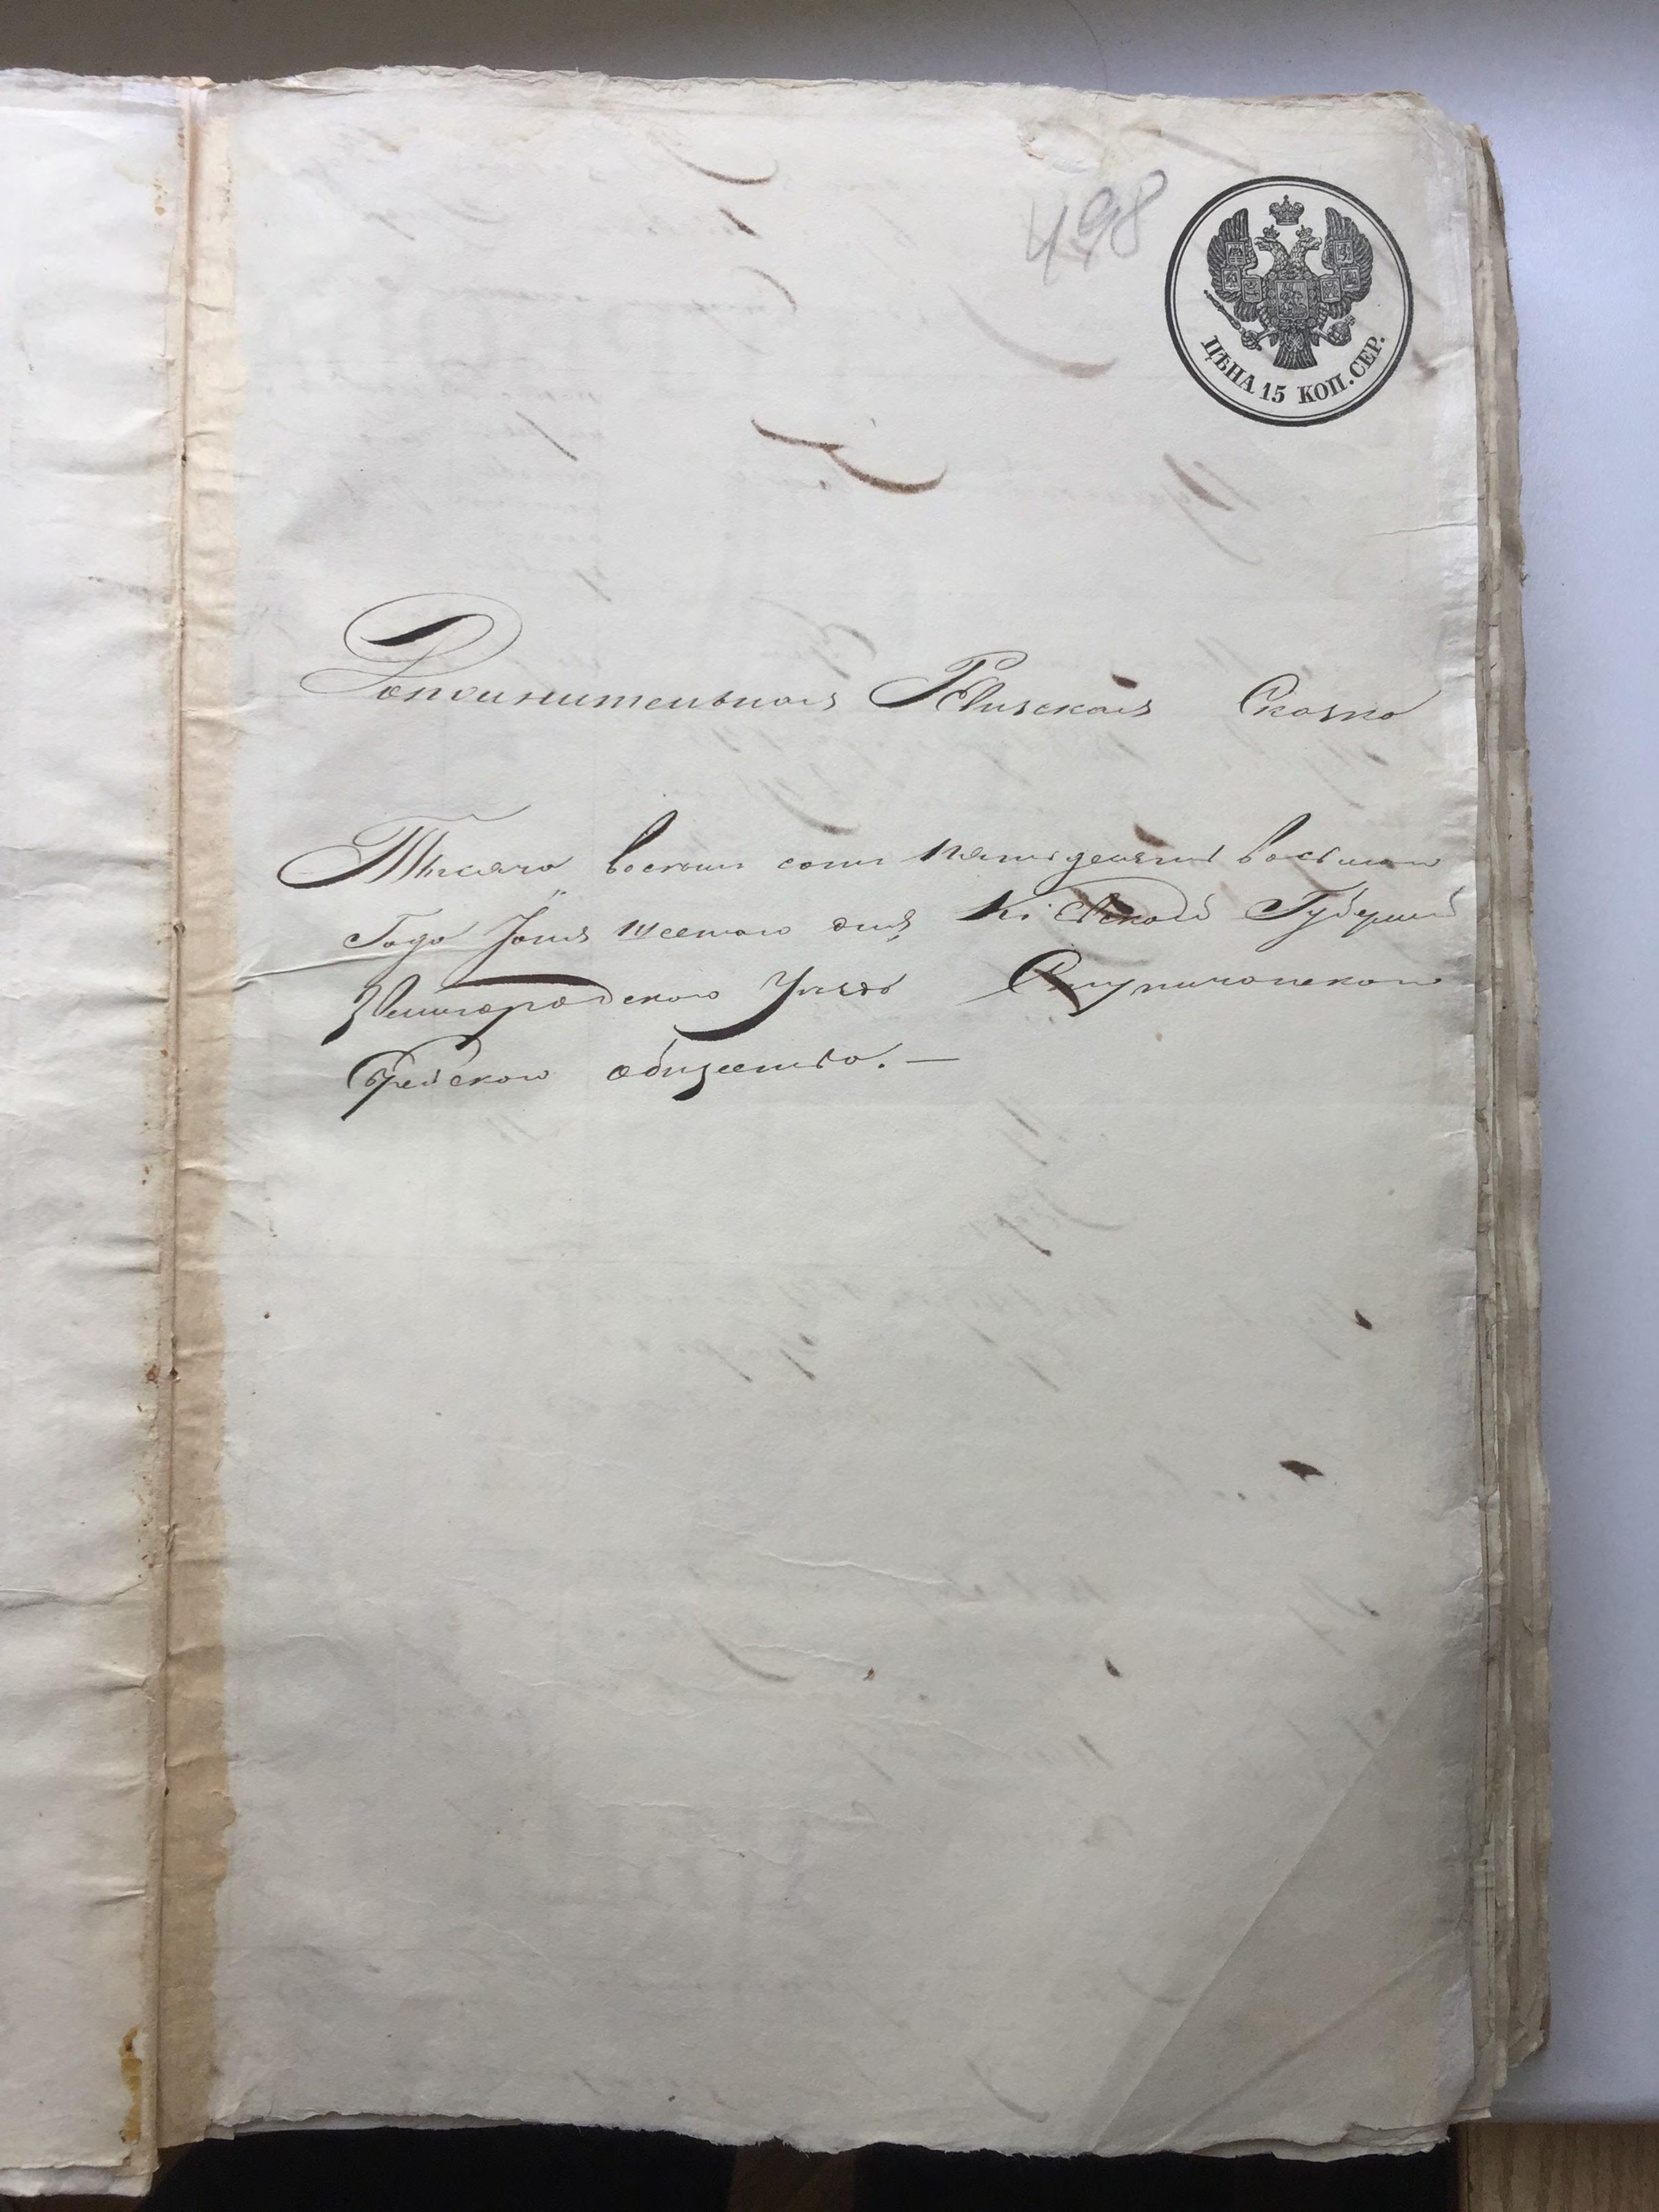 498
ЦѢНА 15 КОП. СЕР.
Дополнительная Ревизская Сказка
Тысяча восемь сотъ пятьдесятъ восьмаго
Года Іюня шестаго дня Кіевской Губерніи
Звенигородскаго Уѣзда
Еврейскаго общества. —